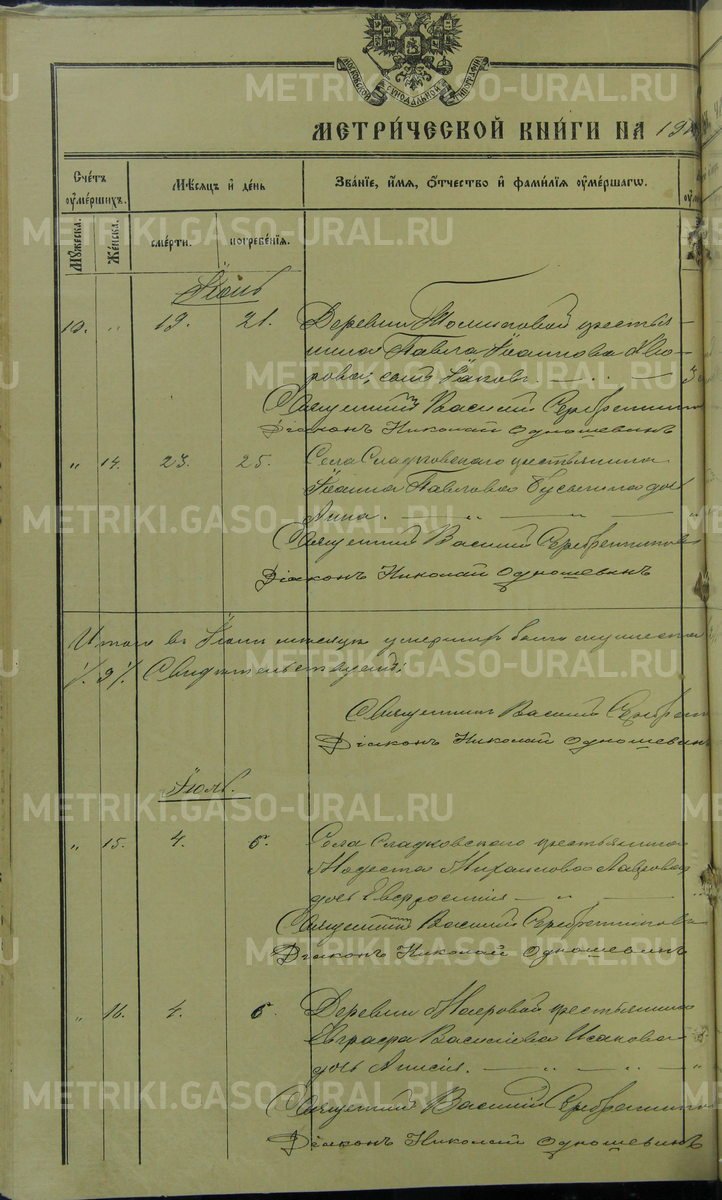 МОСКОВСКОЙ СѴНОДАЛЬНОЙ ТИПОГРАФІИ
МЕТРИ́ЧЕСКОЙ КНИ́ГИ НА 19
Сче́тъ ᲂу҆ме́ршихъ.
Мѣ́сяцъ и҆ де́нь
Зва́нїе, и҆́мѧ, ѻ҆́тчество и҆ фами́лїѧ ᲂу҆ме́ршагѡ.
Мꙋ́жеска.
Же́нска.
сме́рти.
погребе́нїѧ.
Іюнь
10. " 19. 21. Деревни крестья-
нина Павла Іоаннова
сынъ Іаковъ.
Священникъ Василій Серебренников
Діаконъ Николай Одношевинъ
" 14. 23. 25. Села Сладковскаго крестьянина
Іоанна Павлова дочь
Анна.
Священникъ Василій Серебренников
Діаконъ Николай Одношевинъ
Итого въ Іюнѣ мѣсяцѣ умершихъ было мужеска
Свидѣтельствуютъ:
Священникъ Василій Серебрен
Діаконъ Николай Одношевинъ
Іюль.
" 15. 4. 6. Села Сладковскаго крестьянина
Модеста Михаилова
дочь Евфросинія
Священникъ Василій Серебренников
Діаконъ Николай Одношевинъ
" 16. 4. 6. Деревни крестьянина
Евграфа Василіева Исакова
дочь Анисія.
Священникъ Василій Серебренников
Діаконъ Николай Одношевинъ
METRIKI.GASO-URAL.RU